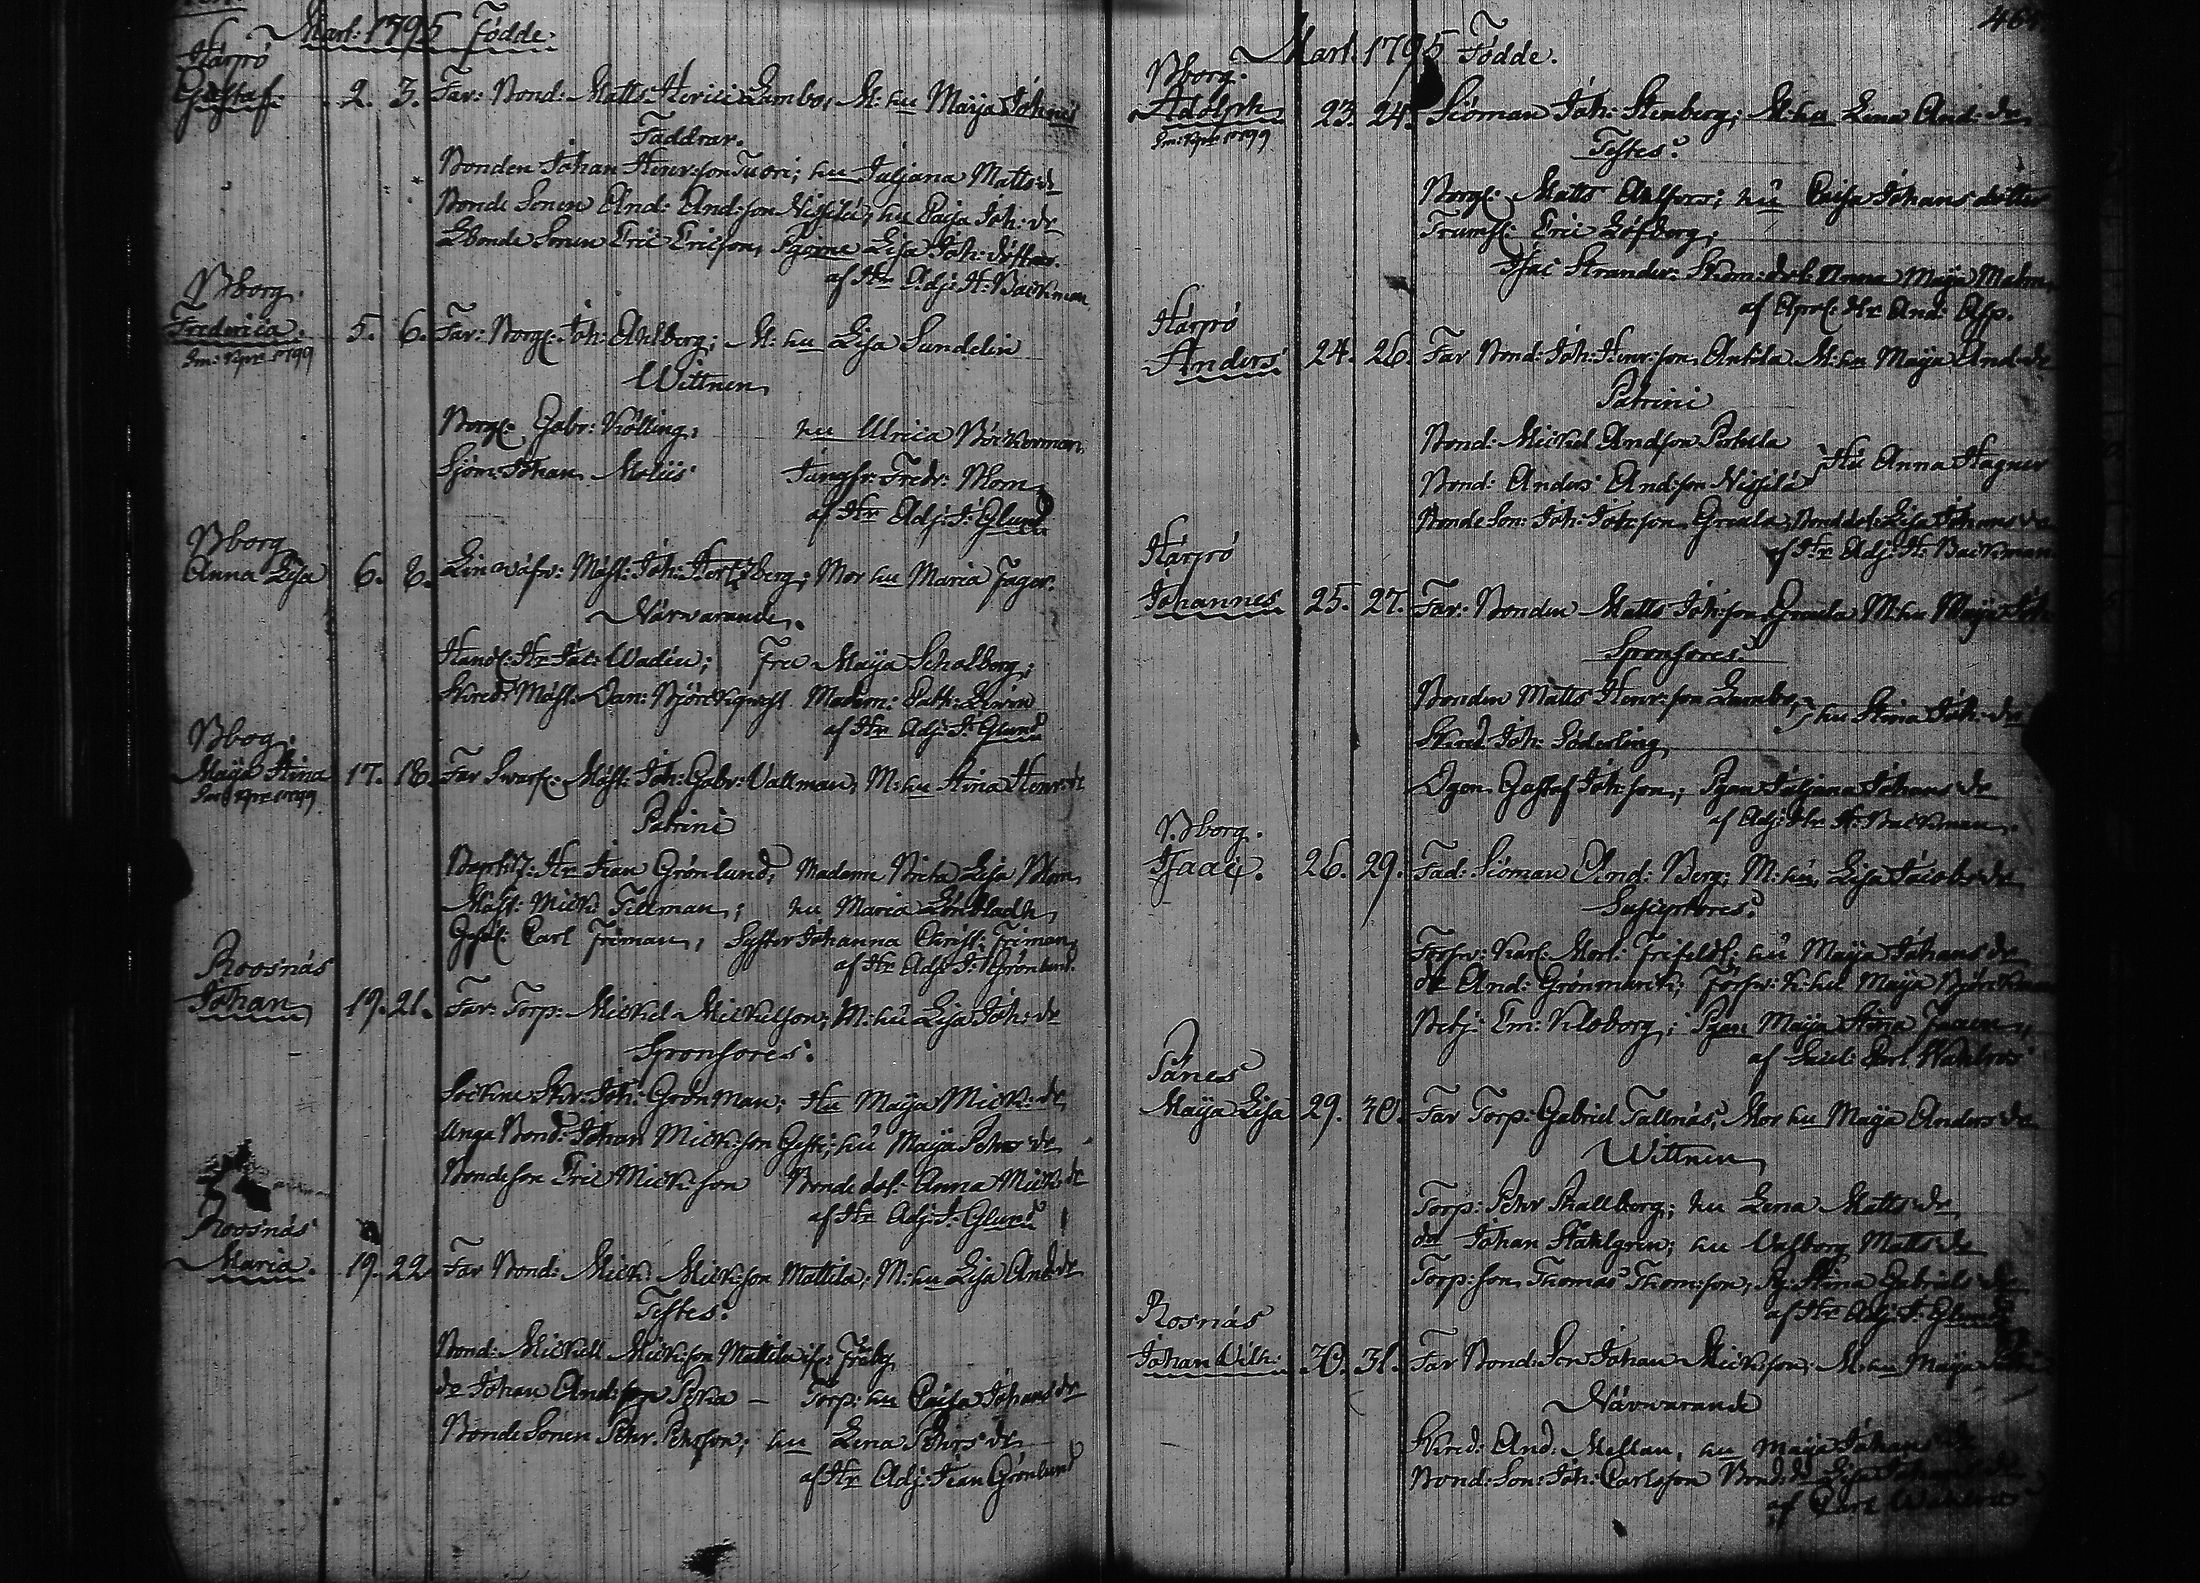 Mart: 1795 Födde.
Härpö
Gustaf. 2. 3. Far: Bond: Matts Henrici Lambo, M: hu Maija Johans
Faddrar.
Bonden Johan Henr:son Tuori; hu Juljana Matts dr
Bonde Sonen And: And:son Nissilä; hu Caisa Joh: dr
Bonde Sonen Eric Ericson, Pigorne Lisa Joh: dotter.
af Hr Adj: H: Backman
Bborg.
Frederica. 5. 6. Far: Borg: Joh: Ahlberg; M: hu Lisa Sundelin
Im: Kopr 1799
Wittnen
Borg: Gabr: Kölling; hu Ulrica Böckerman
Sjöm: Johan Moliis Jungfr: Fredr: Blom
af Hr Adj: J: Glund
Bborg
Anna Lisa 6. 8. Linwäfv: Mäst: Joh: Hertzberg; Mor hu Maria Fager.
Närwarande.
Handl: Hr Jac: Wadén; Fru Maija Schalberg;
Skred: Mäst: Dan: Björckqwist Madem: Cath: Lewin
af Hr Adj: J: Glund
Bborg.
Maija Stina 17. 18. Far Swarf: Mäst: Joh: Gabr: Vallman, M: hu Stina Henr: dr
Im: Kopr 1799
Patrini
Hr Jean Grönlund; Madame Brita Lisa Blom
Mäst: Mick: Tillman; hu Maria
Gesäl: Carl Friman; Syster Johanna Christ: Friman
af Hr Adj: J: Grönlund.
Roosnäs
Johan 19. 21. Far: Torp: Mickel Mickelson; M: hu Lisa Joh: dr
Sponsores:
Sockne Skr: Joh: Grönman; Hu Maija Mick: dr
Unga Bond: Johan Mick:son Geste; hu Maija Pehrs dr
Bondeson Eric Mick:son Bonde dot: Anna Mick: dr
af Hr Adj: J: Glund
Roosnäs
Maria. 19. 22 Far Bond: Mick: Mick:son Mattila; M: hu Lisa And: dr
Testes:
Bond: Mickell Mick:son Mattila
do Johan And:son Pska — Torp: hu Caisa Johans dr
Bonde Sonen Pehr Pehrson; hu Lena Pehrs dr
af Hr Adj: Jean Grönlund
Mart. 1795 Födde.
Bborg.
Adolph 23. 24. Siöman Joh: Stenberg; M: hu Lena And: dr
Im: Kopr 1799
Testes:
Borg: Matts Ahlfors; hu Caisa Johans dotter
Trumsl: Eric Löfberg;
Isac Strander: Skom: dot: Anna Maija Malm
af Hr And: Asp.
Härpö
Anders 24. 26. Far Bond: Joh: Henr:son Anttila M: hu Maija And: dr
Patrini
Bond: Mickel Andson Pertula
Bond: Anders And:son Nissilä } Hu Anna Hagner
Bonde Son: Joh: Joh:son Greula; Bond dot: Lisa Johans dr
af Hr Adj: H: Backman
Härpö
Johannes 25. 27. Far: Bonden Matts Joh:son Greula M: hu Maija Joh:
Sponsores:
Bonden Matts Henr:son Lambo,
Skred: Joh: Söderling } hu Stina Joh: dr
Dgen Gustaf Joh:son; Pgan Juljana Johans dr
af Adj: Hr H: Backman.
Bborg.
Isaac. 26. 29. Fad: Siöman And: Berg; M: hu Lisa Jacobs dr
Susceptores:
Försv: Karl: Mort: Frifeldt; hu Maija Johans dr
do And: Grönmark; Försv: K: hu Maija Björckman
Betj: Em: Kiloborg; Pgan Maija Stina
af Carl Wahlros
Pånes
Maija Lisa 29. 30. Far Torp: Gabriel Tallnäs; Mor hu Maija Anders dr
Wittnen
Torp: Pehr Skallberg; hu Lena Matts dr
do Johan Ståhlgren; hu Valborg Matts dr
Torp: son Thomas Thom:son; Pg: Stina Gabriels dr
af Hr Adj: J: Glund
Rosnäs
Johan Wilh: 30. 31. Far Bond: Son Johan Mick:son; M: hu Maija
Närwarande
Skred: And: Mellan, hu Maija Johans dr
Bond: Son: Joh: Carlsson Bond: dr Lisa Johans dr
af Carl Wahlros